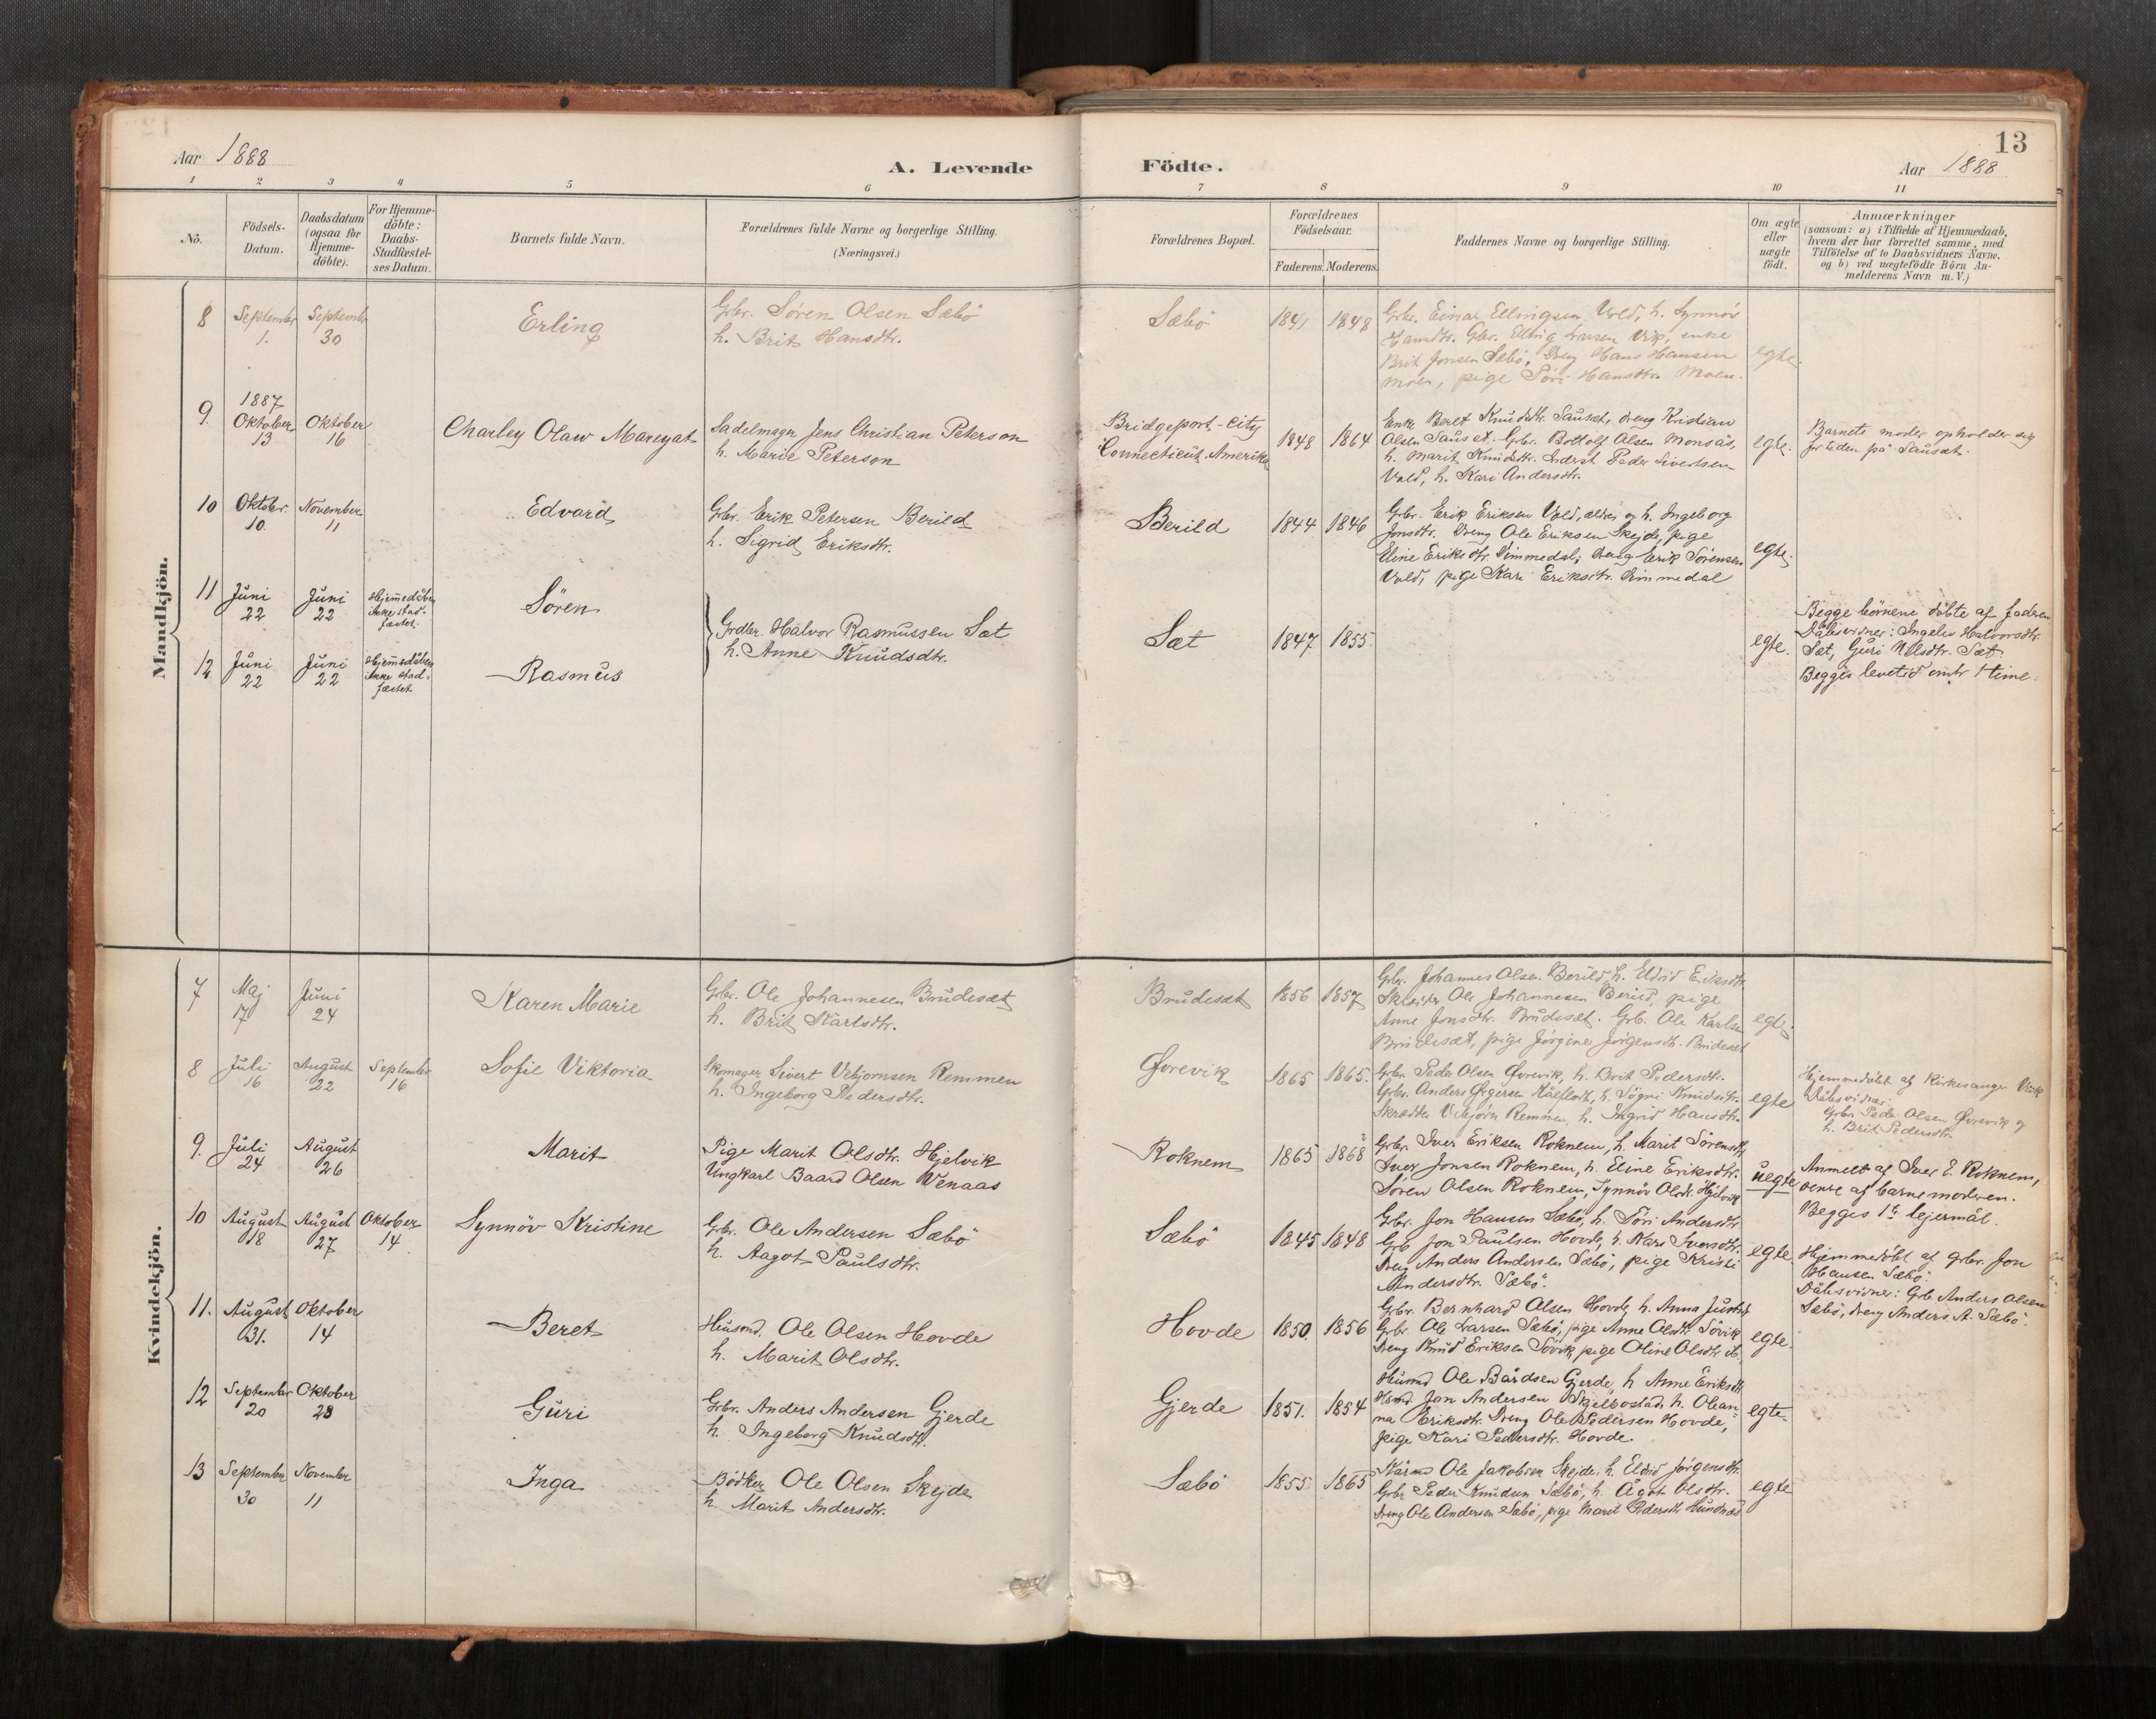 13
Aar 1888
A. Levende Födte.
Aar 1888
1 2 3 4 5 6 7 8 9 10 11
No.
Födsels-
Datum.
Daabsdatum
(ogsaa for
Hjemme-
döbte).
For Hjemme-
döbte:
Daabs-
Stadfæstel-
ses Datum.
Barnets fulde Navn.
Forældrenes fulde Navne og borgerlige Stilling.
(Næringsvei.)
Forældrenes Bopæl.
Forældrenes
Födselsaar.
Faderens. Moderens.
Faddernes Navne og borgerlige Stilling.
Om ægte
eller
uægte
födt.
Anmærkninger
(saasom: a) i Tilfælde af Hjemmedaab,
hvem der har forrettet samme, med
Tilföielse af to Daabsvidners Navne,
og b) ved uægtefödte Börn An-
melderens Navn m. V.)
Mandkjön.
8
September
1.
September
30
Erling
Grbr. Søren Olsen Sæbö
h. Brit Hansdtr.
Sæbö
1841
1848
Grbr. Einar Ellingsen Vold, h. Synnöv
Hansdtr. Gbr. Elling Larsen Vik, enke
Brit Jonsen Sæbö, Dreng Hans Hansen
Moen, pige Söri Hansdtr. Moen.
egte.
9.
1887
Oktober
13
Oktober
16
Charley Olaw Mareyat
Sadelmager Jens Christian Peterson
h. Marie Peterson
Bridgeport-City
Connecticut, Amerika
1848
1864
Enke Beret Knudsdtr. Sausæt, dreng Kristian
Olsen Sausæt. Grbr. Bottolf Olsen Monsås,
h. Marit Knudsdtr. Inderst Peder Sivertsen
Vold, h. Kari Andersdtr.
egte.
Barnets moder opholder sig
for tiden på Sausæt.
10
Oktober.
10.
November
11
Edvard
Grbr. Erik Petersen Berild
h. Sigrid Eriksdtr.
Berild
1844
1846
Grbr. Erik Eriksen Vold, ældre, og h. Ingeborg
Jonsdtr. Dreng Ole Eriksen Skejde, pige
Eline Eriksdtr. Dimmedal, dreng Erik Sörensen
Vold, pige Kari Eriksdtr. Dimmedal
egte.
11
Juni
22
Juni
22
Hjemmedöben
ikke stad-
fæstet.
Sören
Grdbr. Halvor Rasmussen Sæt
h. Anne Knudsdtr.
Sæt
1847
1855
egte.
Begge börnene döbte af faderen
Dåbsvidner: Ingelev Halvorsdtr.
Sæt, Guri Nilsdtr. Sæt
Begges levetid omtr 1 time.
12
Juni
22
Juni
22
Hjemmedöben
ikke stad-
fæstet
Rasmus
Kvindekjön.
7
Maj
17
Juni
24
Karen Marie
Grbr. Ole Johannesen Brudesæt
h. Brit Karlsdtr.
Brudesæt
1856
1857
Grbr. Johannes Olsen Berild, h. Eldrid Eriksdtr.
Ole Johannesen Berild, pige
Anne Jonsdtr. Brudesæt. Grb. Ole Karlsen
Brudesæt, pige Jörgine Jörgensdtr. Brudesæt
egte.
8
Juli
16
August
22
September
16
Sofie Viktoria
Skomager Sivert Vebjornsen Remmen
h. Ingeborg Pedersdtr.
Øvrevik
1865
1865.
Grbr. Peder Olsen Øvrevik, h. Brit Pedersdtr.
Grbr. Anders Ørgersen Kålflot, h. Sögni Knudsdtr.
Skrædder Vebjörn Remmen, h. Ingrid Hansdtr.
egte
Hjemmedöbt af Kirkesanger Vik
Dåbsvidner:
Grbr. Peder Olsen Øvrevik og
h. Brit Pedersdtr.
9.
Juli
24
August
26
Marit
Pige Marit Olsdtr. Hjelvik
Ungkarl Baard Olsen Venaas
Roknem
1865
1868
Grbr. Iver Eriksen Roknem, h. Marit Sörensdtr.
Iver Jonsen Roknem, h. Eline Eriksdtr.
Sören Olsen Roknem, Synnöv Olsdtr. Hjelvik
uegte
Anmeldt af Iver E. Roknem,
af barnemoderen.
Begges 1ste lejermål.
10
August
18
August
27
Oktober
14
Synnöv Kristine
Grbr. Ole Andersen Sæbö
h. Aagot Paulsdtr.
Sæbö
1845
1848
Grbr. Jon Hansen Sæbö, h. Söri Andersdtr.
Grb Jon Paulsen Hovde, h. Kari Iversdtr.
Dreng Anders Andersen Sæbö, pige Kristi
Andersdtr. Sæbö.
egte.
Hjemmedöbt af grbr. Jon
Hansen Sæbö.
Dåbsvidner: Grb Anders Olsen
Sæbö, dreng Anders A. Sæbö.
11.
August
31.
Oktober
14
Beret
Husmd. Ole Olsen Hovde
h. Marit Olsdtr.
Hovde
1850.
1856
Grbr. Bernhard Olsen Hovde, h. Anna Justsdtr.
Grbr. Ole Larsen Sæbö, pige Anne Olsdtr. Sövik
Dreng Knud Eriksen Sövik, pige Oline Olsdtr. ib.
egte.
12
September
20
Oktober
28
Guri
Grbr. Anders Andersen Gjerde
h. Ingeborg Knudsdtr.
Gjerde
1851.
1854
Husmd Ole Bårdsen Gjerde, h Anne Eriksdtr.
Hsmd. Jon Andersen Skjelbostad, h. Olean-
na Eriksdtr. Dreng Ole Pedersen Hovde,
pige Kari Pedersdtr. Hovde.
egte.
13
September
30
November
11
Inga
Bödker Ole Olsen Skejde
h. Marit Andersdtr.
Sæbö
1855
1865
Kårmd Ole Jakobsen Skejde, h. Eldrid Jörgensdtr.
Grbr Peder Knudsen Sæbö, h. Ågot Olsdtr.
Dreng Ole Andersen Sæbö, pige Marit Pedersdtr. Hundnæs
egte